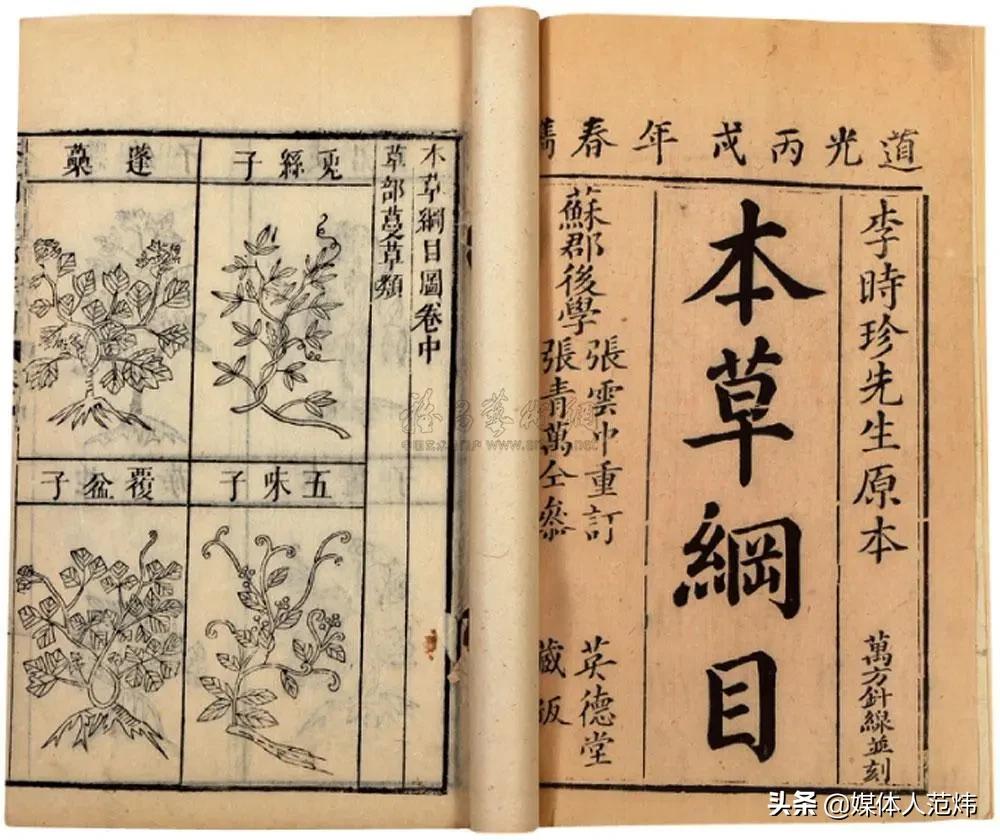 道光丙戌年春鐫
李時珍先生原本
萬方針線並刻
本草綱目
蘇郡後學
張雲中重訂
張青萬仝參
英德堂
藏版
本草綱目圖卷中
草部蔓草類
兎絲子
蓬蘽
五味子
覆盆子
头条 @媒体人范炜